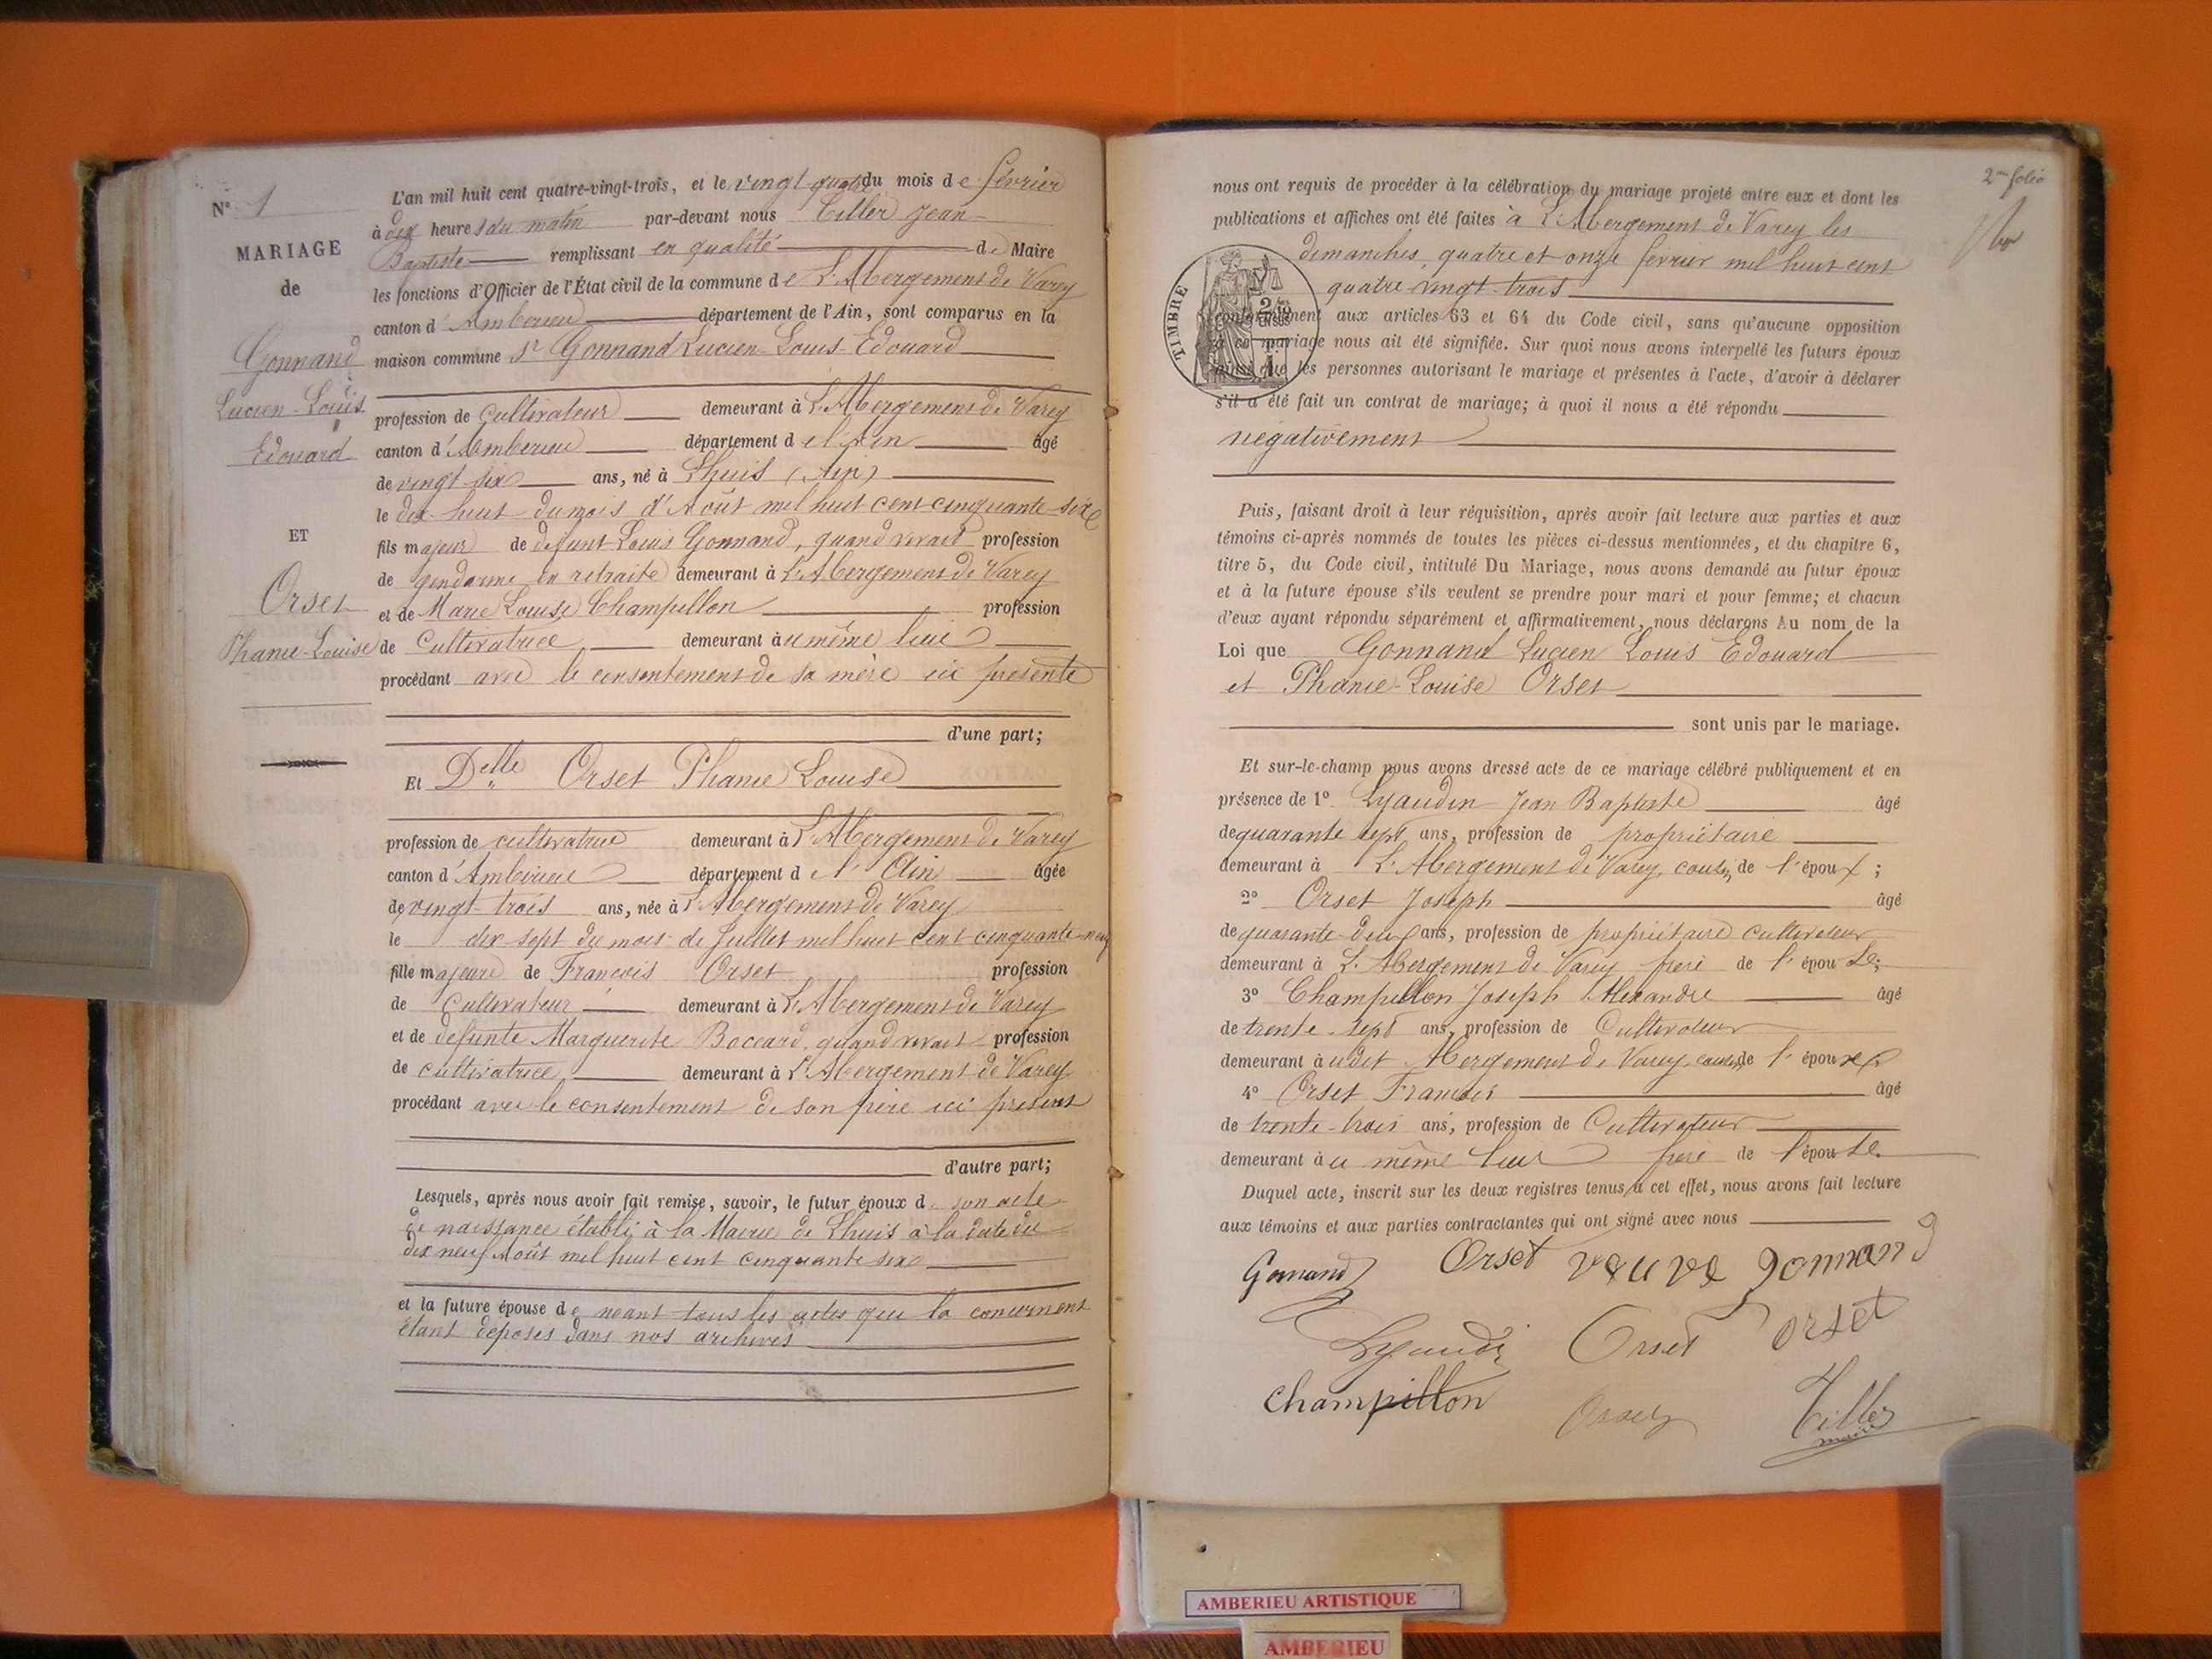 N° 1
MARIAGE
de
Gonnand
Lucien-Louis
Edouard
ET
Orset
Phanie-Louise
L'an mil huit cent quatre-vingt-trois, et le vingt quatre du mois de février
à dix heures du matin par-devant nous Tiller Jean
Baptiste remplissant en qualité de Maire
les fonctions d'Officier de l'État civil de la commune de L'Abergement de Varey
canton d'Amberieu département de l'Ain, sont comparus en la
maison commune Sr Gonnand Lucien-Louis-Edouard
profession de cultivateur demeurant à L'Abergement de Varey
canton d'Amberieu département de l'Ain âgé
de vingt six ans, né à Lhuis (Ain)
le dix huit du mois d'Août mil huit cent cinquante-six
fils majeur de défunt Louis Gonnand, quand vivait profession
de gendarme en retraite demeurant à L'Abergement de Varey
et de Marie Louise Champillon profession
de Cultivatrice demeurant au même lieu
procédant avec le consentement de sa mère ici présente
d'une part;
Et Delle Orset Phanie Louise
profession de cultivatrice demeurant à L'Abergement de Varey
canton d'Ambérieu département de l'Ain âgée
de vingt-trois ans, née à L'Abergement de Varey
le dix-sept du mois de Juillet mil huit cent cinquante-neuf
fille majeure de François Orset profession
de Cultivateur demeurant à L'Abergement de Varey
et de defunte Marguerite Boccard, quand vivait profession
de cultivatrice demeurant à L'Abergement de Varey
procédant avec le consentement de son père ici présent
d'autre part;
Lesquels, après nous avoir fait remise, savoir, le futur époux de son acte
de naissance établi à la Mairie de Lhuis à la date du
dix neuf Août mil huit cent cinquante six
et la future épouse de néant tous les actes qui la concernent
étant déposés dans nos archives
2me folio
nous ont requis de procéder à la célébration du mariage projeté entre eux et dont les
publications et affiches ont été faites à L'Abergement de Varey les
dimanches, quatre et onze février mil huit cent
quatre-vingt-trois
TIMBRE
conformément aux articles 63 et 64 du Code civil, sans qu'aucune opposition
à ce mariage nous ait été signifiée. Sur quoi nous avons interpellé les futurs époux
ainsi que les personnes autorisant le mariage et présentes à l'acte, d'avoir à déclarer
s'il a été fait un contrat de mariage; à quoi il nous a été répondu
négativement
Puis, faisant droit à leur réquisition, après avoir fait lecture aux parties et aux
témoins ci-après nommés de toutes les pièces ci-dessus mentionnées, et du chapitre 6,
titre 5, du Code civil, intitulé Du Mariage, nous avons demandé au futur époux
et à la future épouse s'ils veulent se prendre pour mari et pour femme; et chacun
d'eux ayant répondu séparément et affirmativement, nous déclarons Au nom de la
Loi que Gonnand Lucien Louis Edouard
et Phanie-Louise Orset
sont unis par le mariage.
Et sur-le-champ nous avons dressé acte de ce mariage célébré publiquement et en
présence de 1° Lyaudin Jean Baptiste âgé
de quarante sept ans, profession de propriétaire
demeurant à L'Abergement de Varey, cousin de l'époux;
2° Orset Joseph âgé
de quarante-deux ans, profession de propriétaire cultivateur
demeurant à L'Abergement de Varey frère de l'épouse;
3° Champillon Joseph Alexandre âgé
de trente-sept ans, profession de Cultivateur
demeurant audit Abergement de Varey, cousin de l'époux
4° Orset François âgé
de trente-trois ans, profession de Cultivateur
demeurant au même lieu frère de l'épouse.
Duquel acte, inscrit sur les deux registres tenus à cet effet, nous avons fait lecture
aux témoins et aux parties contractantes qui ont signé avec nous
Gonnand Orset veuve gonnand
Lyaudin Orset orset
Champillon Tiller
maire
AMBERIEU ARTISTIQUE
AMBERIEU